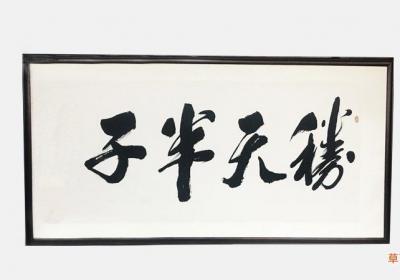 勝天半子
草